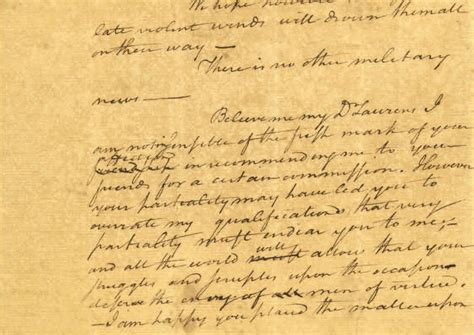 We hope
late violent winds will drown them all
on their way —
There is no other military
news —
Believe me my Dr Laurens I
am not insensible of the fresh mark of your
affection in recommending me to your
friends for a certain commission. However
your partiality may have led you to
overrate my qualifications that very
partiality must endear you to me;
and all the world will allow that your
struggles and scruples upon the occasion
deserve the envy of all men of virtue.
— I am happy you placed the matter upon